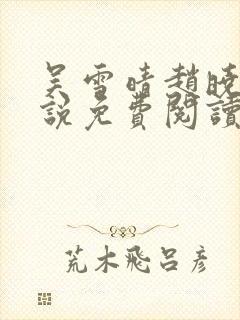 吴雪晴趙
說免費閱讀
荒木飛呂彥